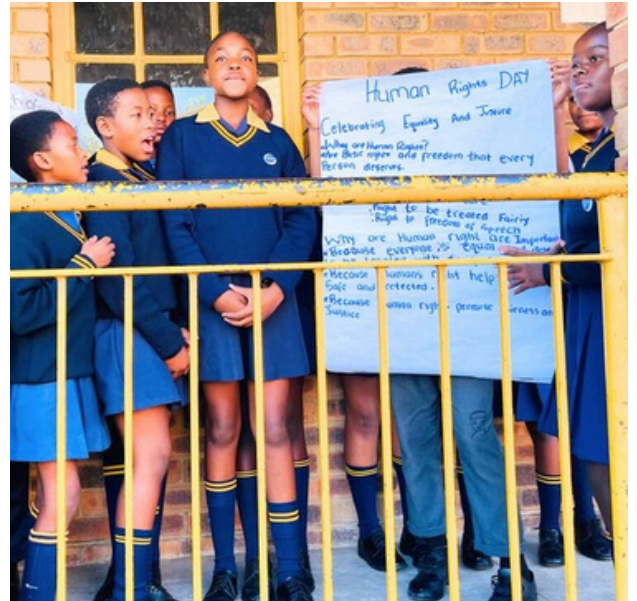 Human Rights DAY
Celebrating Equality And Justice
Why are Human Rights?
Are Basic rights and freedom that every
Person deserves.
Right to be treated Fairly
Right to freedom of speech
Why are Human right are Important
Because everyone is equal
Because humans right help
Safe and protected.
Because human right promise
Justice